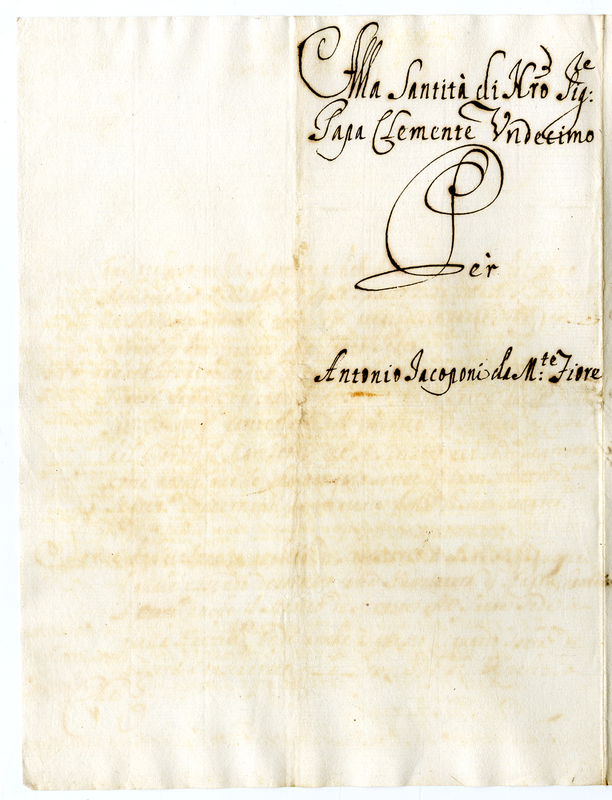 Alla Santità di Nrõ Sig:re
Papa Clemente Vndecimo
Per
Antonio Jacoponi da M:te Fiore